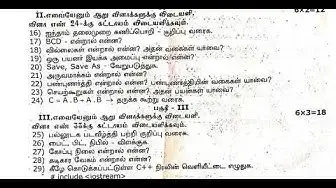 6x2=12
II.எவையேனும் ஆறு வினாக்களுக்கு விடையளி.
வினா எண் 24-க்கு கட்டாயம் விடையளிக்கவும்.
16) ஐந்தாம் தலைமுறை கணிப்பொறி - குறிப்பு வரைக.
17) BCD - என்றால் என்ன?
18) வில்லைகள் என்றால் என்ன? அதன் வகைகள் யாவை?
19) ஒரு பயனர் இயக்க அமைப்பு என்றால் என்ன?
20) Save, Save As - வேறுபடுத்துக.
21) அருவமாக்கம் என்றால் என்ன?
22) பண்புணர்த்தி என்றால் என்ன? பண்புணர்த்தியின் வகைகள் யாவை?
23) செயற்கூறுகள் என்றால் என்ன? அதன் பயன்கள் யாவை?
24) C = A.B + A.B -> தருக.
பகுதி - III
III.எவையேனும் ஆறு வினாக்களுக்கு விடையளி.
6x3=18
வினா எண் 33க்கு கட்டாயம் விடையளிக்கவும்.
25) பல்லூடக படவீழ்த்தி பற்றி குறிப்பு வரைக.
26) பைட், பிட், நிபில் - விளக்குக.
27) கோப்பு நிலை என்றால் என்ன?
28) சுடிகார வேகம் என்றால் என்ன?
29) கீழே கொடுக்கப்பட்டுள்ள C++ நிரலின் வெளியீட்டை எழுதுக.
# include <iostream>